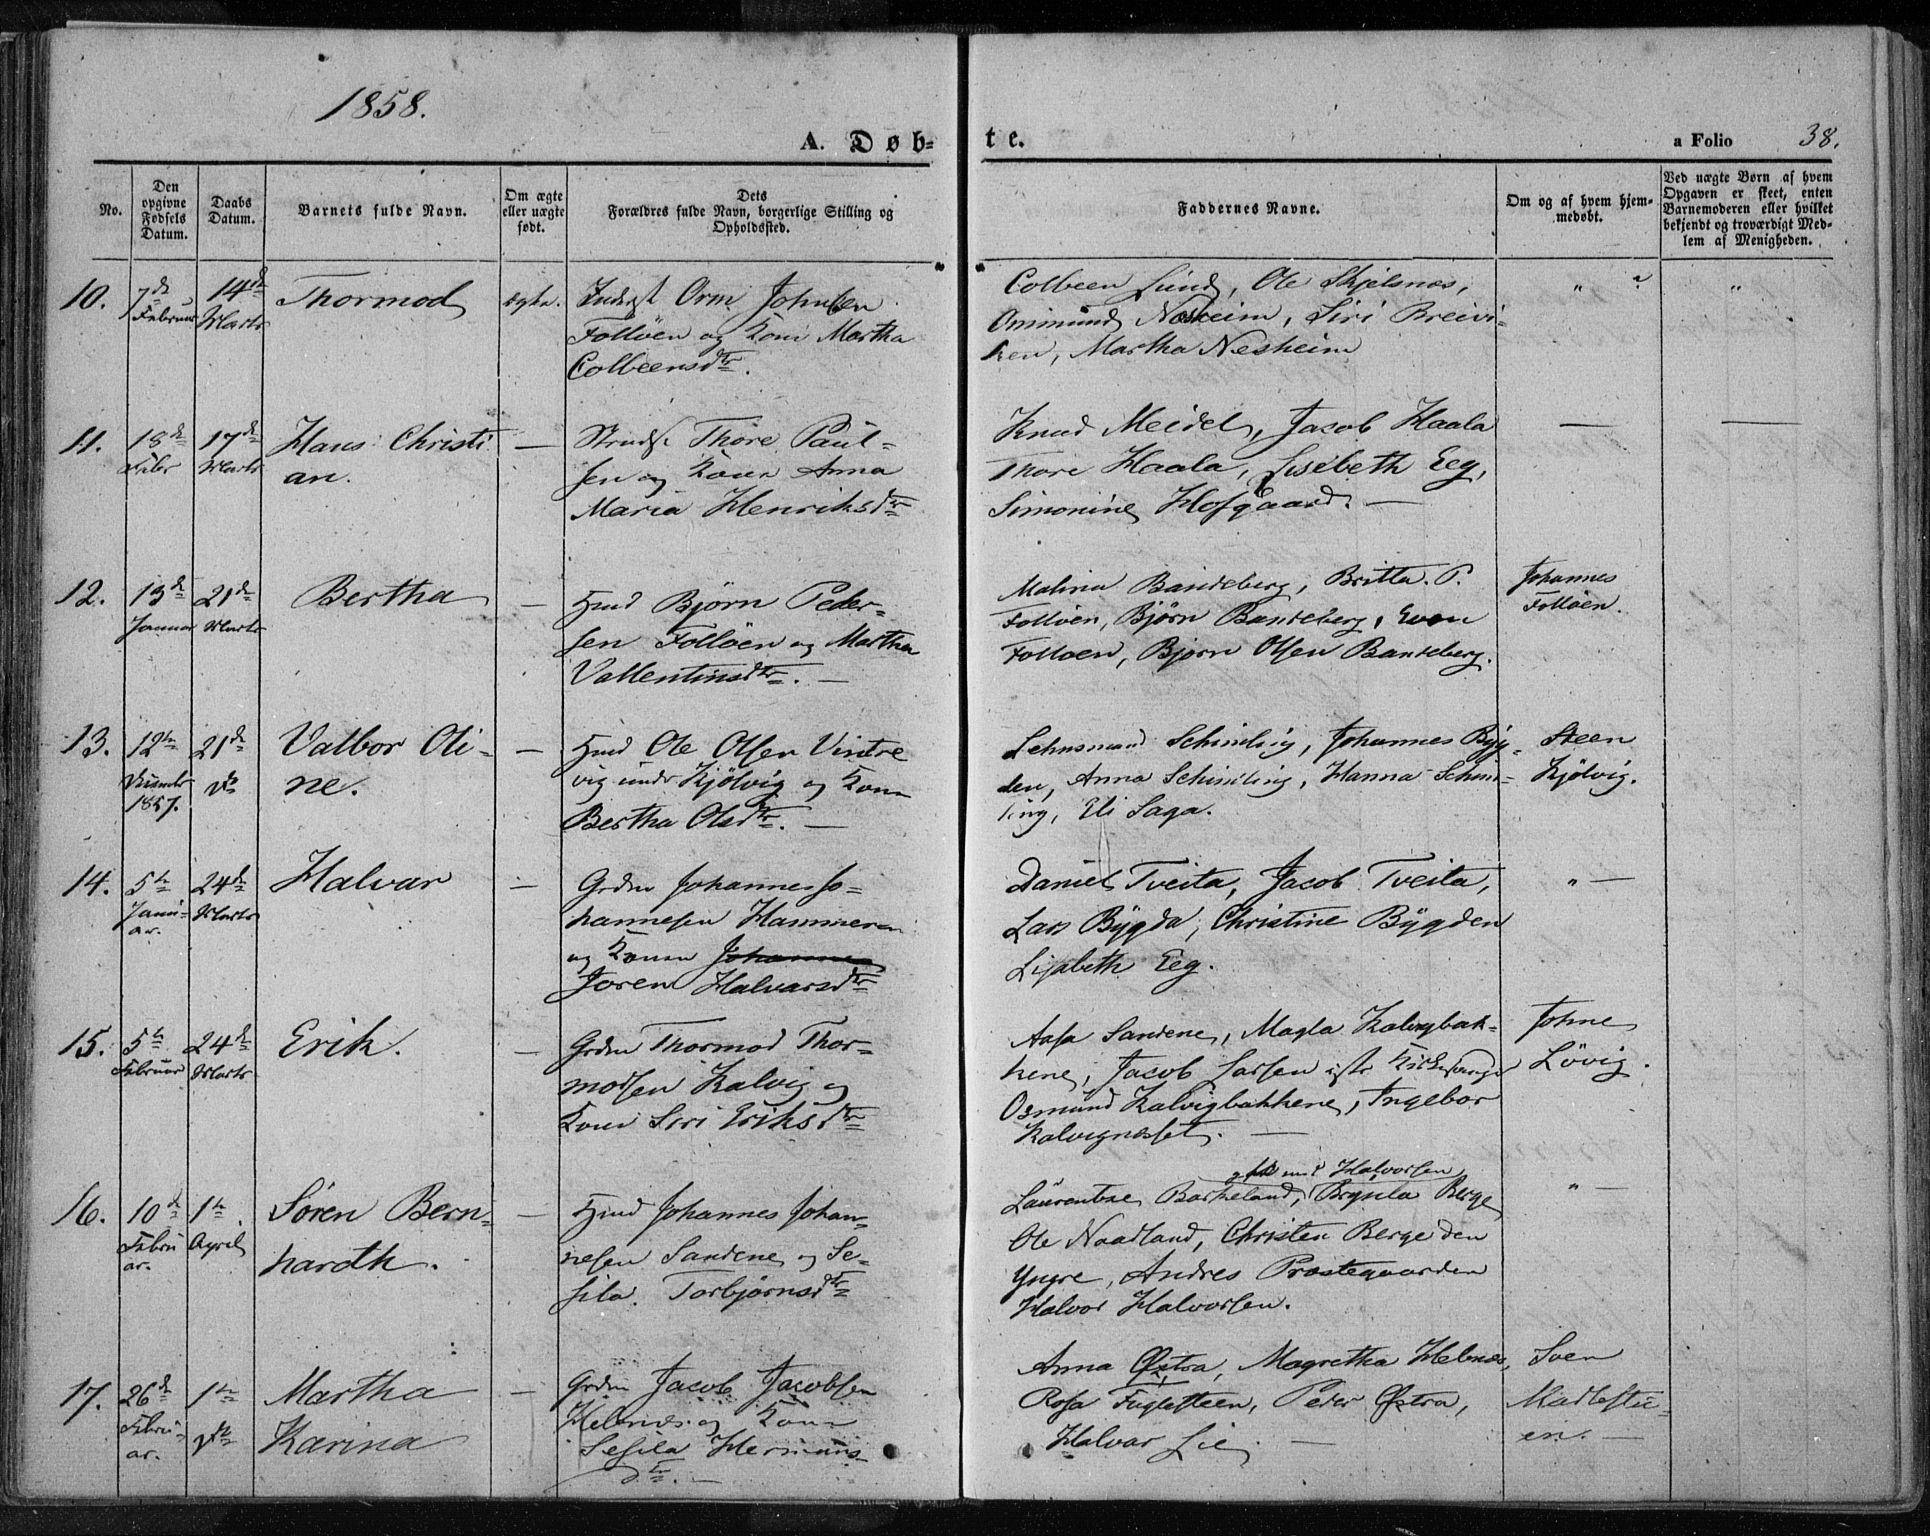 1858.
A. Døb-
te.
a Folio 38.
No.
Den opgivne Fødsels Datum.
Daabs Datum.
Barnets fulde Navn.
Om ægte eller uægte født.
Dets Forældres fulde Navn, borgerlige Stilling og Opholdssted.
Faddernes Navne.
Om og af hvem hjem-
medøbt.
Ved uægte Børn af hvem
Opgaven er skeet, enten
Barnemoderen eller hvilket
bekjendt og troværdigt Med-
lem af Menigheden.
10. 7de Februar 14de Marts Thormod ægte. Inderst Orm Johnsen
Folløen og Kone Martha
Colbeensdtr.
Colbeen Lund, Ole Skjelsnæs,
Ommund Nesheim, Siri Breivi-
ken, Martha Nesheim
" "
11. 18de Febr 17de Marts Hans Christi
an. — Strands. Thore Paul-
sen og Kone Anna
Maria Henriksdtr
Knud Meidel, Jacob Haala
Thore Haala, Lisebeth Eeg,
Simonine Hofgaard. —
— —
12. 13de Januar 21de Marts Bertha — Hmd Bjørn Peder-
sen Folløen og Martha
Vallentinsdtr. —
Malina Bandeberg, Britta P.
Folløen, Bjørn Bandeberg, Even
Folløen, Bjørn Olsen Bandeberg.
Johannes
Folløen.
13. 12te December 1857. 21de do Valbor Oli-
ne. — Hmd Ole Olsen Vintre
vig under Kjölvig og Kone
Bertha Olsdtr. —
Lehnsmand Schimling, Johannes Byg-
den, Anna Schimling, Hanna Schim-
ling, Eli Saga.
Steen
Kjölvig.
14. 5te Janu-
ar. 24de Marts Halvar — Grdm Johannes Jo-
hannesen Hammeren
og Kone Johanne
Joren Halvarsdtr
Daniel Tveita, Jacob Tveita,
Lars Bÿgda, Christine Bÿgden
Lisabeth Eeg.
" —
15. 5te Februar 24de Marts Erik. — Grdm Thormod Thor-
modsen Kalvig og
Kone Siri Eriksdtr
Aasa Sandene, Magla Kalvigbak-
kene, Jacob Larsen
Osmund Kalvigbakkene, Ingebor
Kalvignæsset. —
Johne
Lövig.
16. 10de Febru
ar. 1te April Søren Bern-
hardth. — Hmd Johannes Johan-
nesen Sandene og Se-
sila Torbjørnsdtr
gift med Halvorsen
Laurentze Barkeland, Brynla Berge
Ole Naadland, Christen Berge den
Yngre, Andres Præstegaarden
Halvor Halvorsen.
" —
17. 26de Febru-
ar. 1te do Martha
Karina — Grdm Jacob Jacobsen
Helnæs og Kone
Sesila Hermans-
dtr. —
Anna Østra, Magretha Helnæs,
Rosa Fuglesteen, Peder Østra,
Halvar Lie —
Soen
Madlestu-
en. —